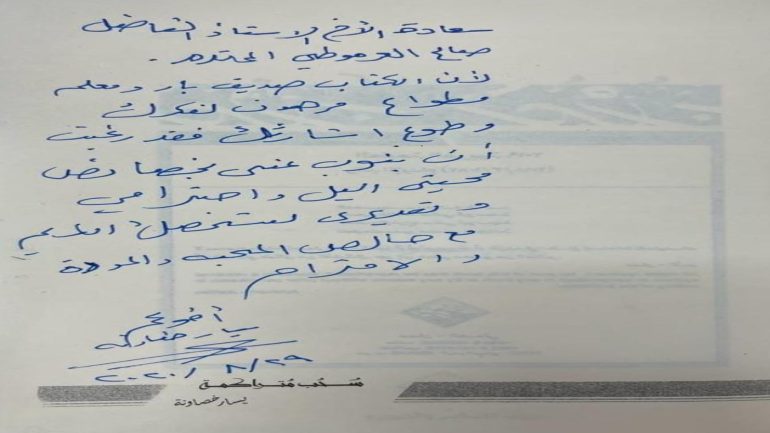 سعادة الأخ الاستاذ الفاضل
صالح العرموطي المحترم .
لأن الكتاب صديق بار ومعلم
مطواع مرهون لفكرك
وطوع اشارتك فقد رغبت
أن ينوب عني بخصائص
محبتي اليك واحترامي
وتقديري لشخصك الكريم
مع خالص المحبه والمودة
والاحترام
أخوك
يسار خصاونه
٢٠٢٠/٨/٢٩
سحب متراكمة
يسار خصاونة